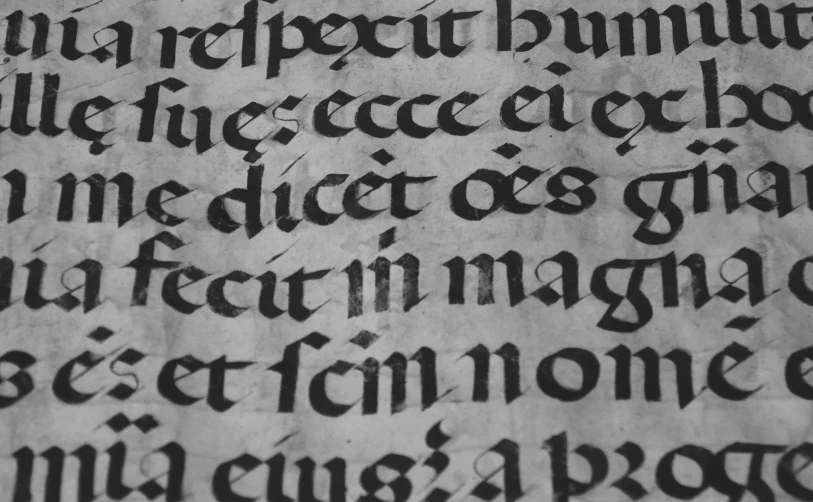 uia reſpexit humilit
illę ſuę: ecce ei ex hoc
n me dicēt oēs gn̄a
uia fecit m̄ magna q
s ē: et ſcm̄ nomē e
mīa eius: a proge